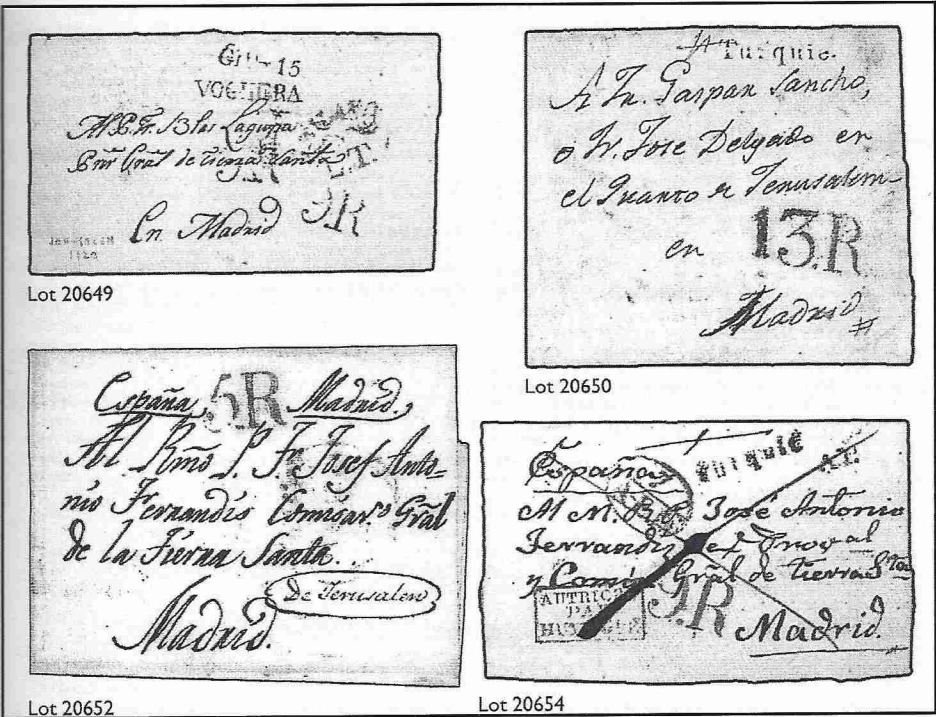 GIU-15
VOGHERA
Al P. Fr. Blas Laguna
Pnr Gral de tierra Santa
L.T.
9R
En Madrid
JERUSALEM
Lot 20649
Turquie.
A Fr. Gaspar Sancho,
o Fr. Jose Delgado en
el Quarto de Jerusalem
en
13.R
Madrid
Lot 20650
España, 5R Madrid,
Al Rmo P. Fr. Josef Anto-
nio Fernandis Comisaro Gräl
de la Tierra Santa.
De Jerusalen
Madrid.
Lot 20652
España
Turquie
A.T.
Al M. R. P. José Antonio
Ferrandis ex Proval
y Comis Gral de tierra Sta
AUTRICHE
PAR
HUNINGUE
9.R
Madrid.
Lot 20654